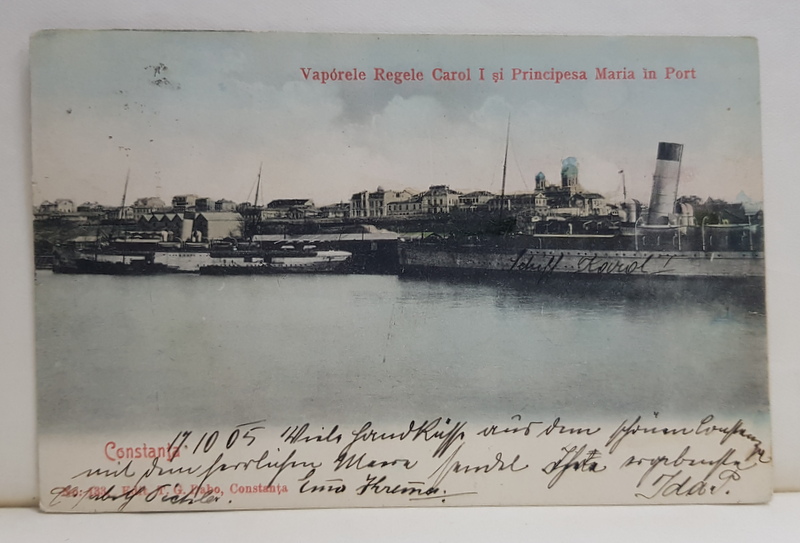 Vapórele Regele Carol I și Principesa Maria în Port
Schiff Karol I
Constanța
17.10 05 Viele Handküsse aus dem schönen Constanza
mit dem herrlichen Meere sendet Ihre ergebenste
No. 133. Edit. T. G. Dabo, Constanța
Ida P.